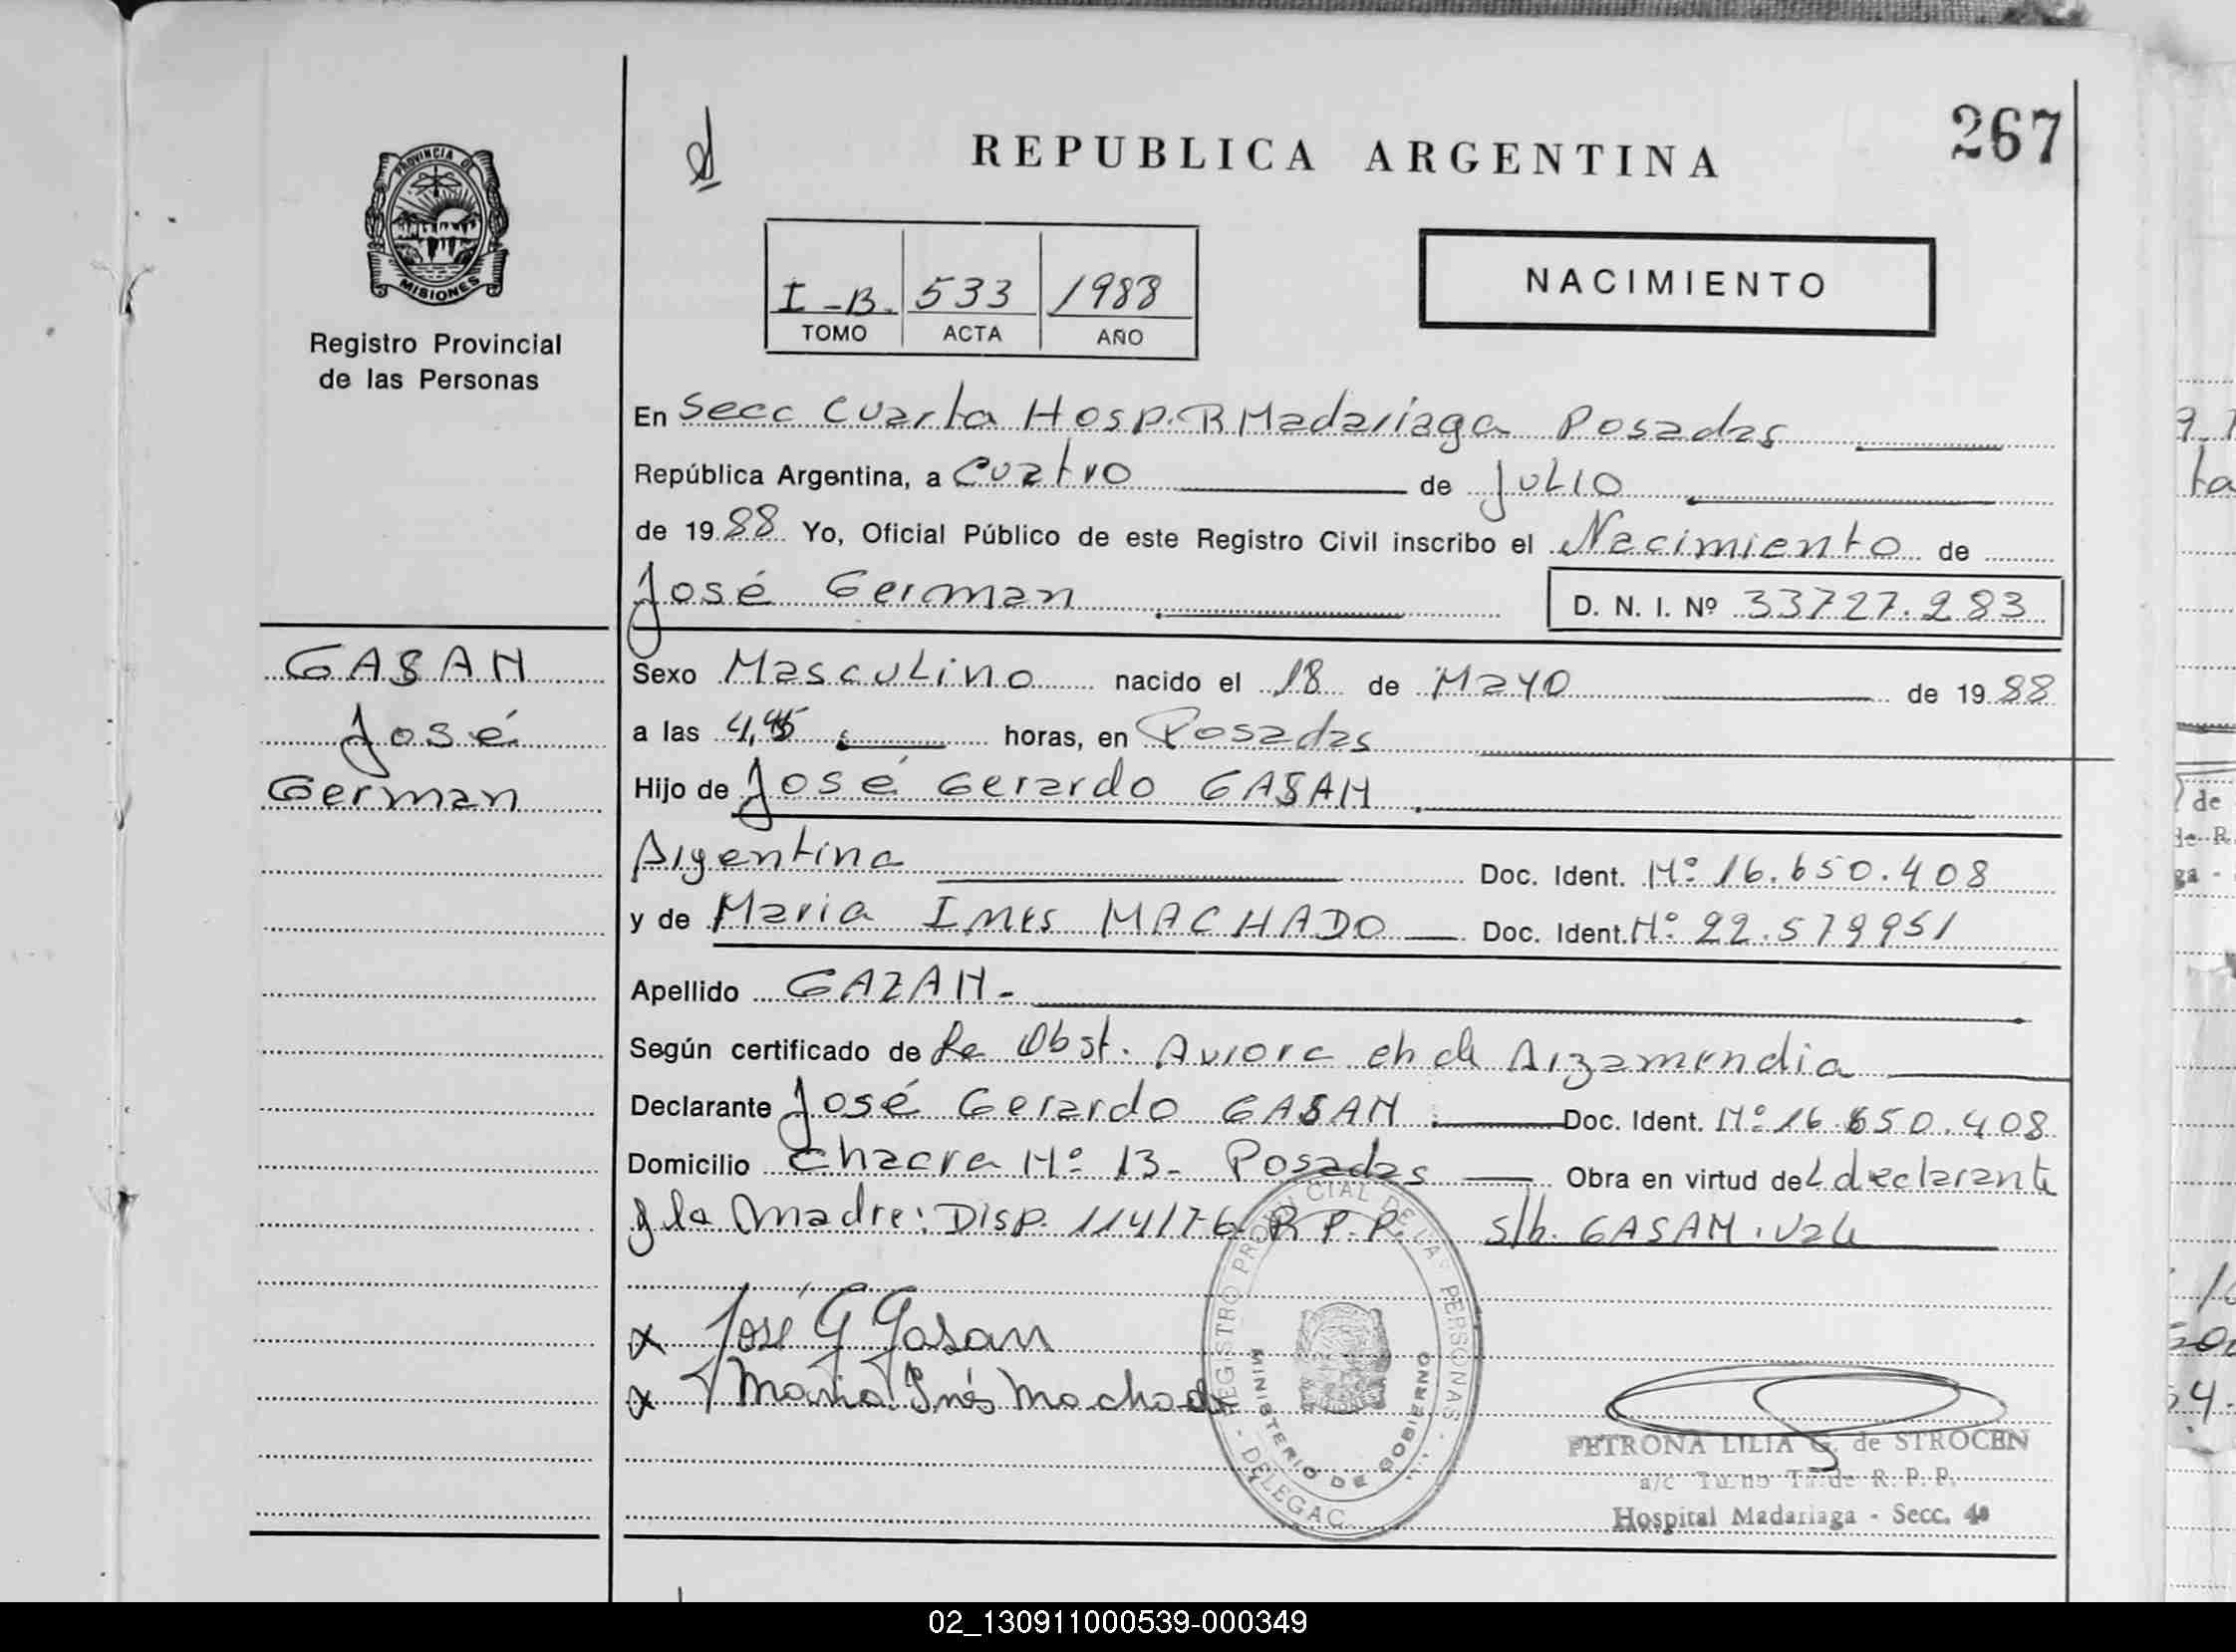 267
REPUBLICA ARGENTINA
PROVINCIA DE
MISIONES
Registro Provincial
de las Personas
NACIMIENTO
I-B. 533 1988
TOMO ACTA AÑO
En Secc Cuarta Hosp. R Madariaga Posadas
República Argentina, a Cuatro de JULIO
de 1988 Yo, Oficial Público de este Registro Civil inscribo el Nacimiento de
José German D. N. I. Nº 33727.283
GASAN
José
German
Sexo Masculino nacido el 18 de Mayo de 1988
a las 4,45 horas, en Posadas
Hijo de José Gerardo GASAN
Argentina Doc. Ident. Nº 16.650.408
y de Maria Ines MACHADO Doc. Ident. Nº 22.579951
Apellido GAZAN.-
Según certificado de la Obst. Aurora ch de Arzamendia
Declarante José Gerardo GASAN Doc. Ident. Nº 16 650.408
Domicilio Chacra Nº 13- Posadas Obra en virtud del declarante
y la Madre: Disp. 114/76 R.P.P. s/b. GASAN. Vale
x José G Gasan
x Maria Inés Machado
REGISTRO PROVINCIAL DE LA PERSONAS - DELEGAC.
MINISTERIO DE GOBIERNO
PETRONA LILIA G. de STROCEN
a/c Turno Td de R. P. P.
Hospital Madariaga - Secc. 4a
02_130911000539-000349